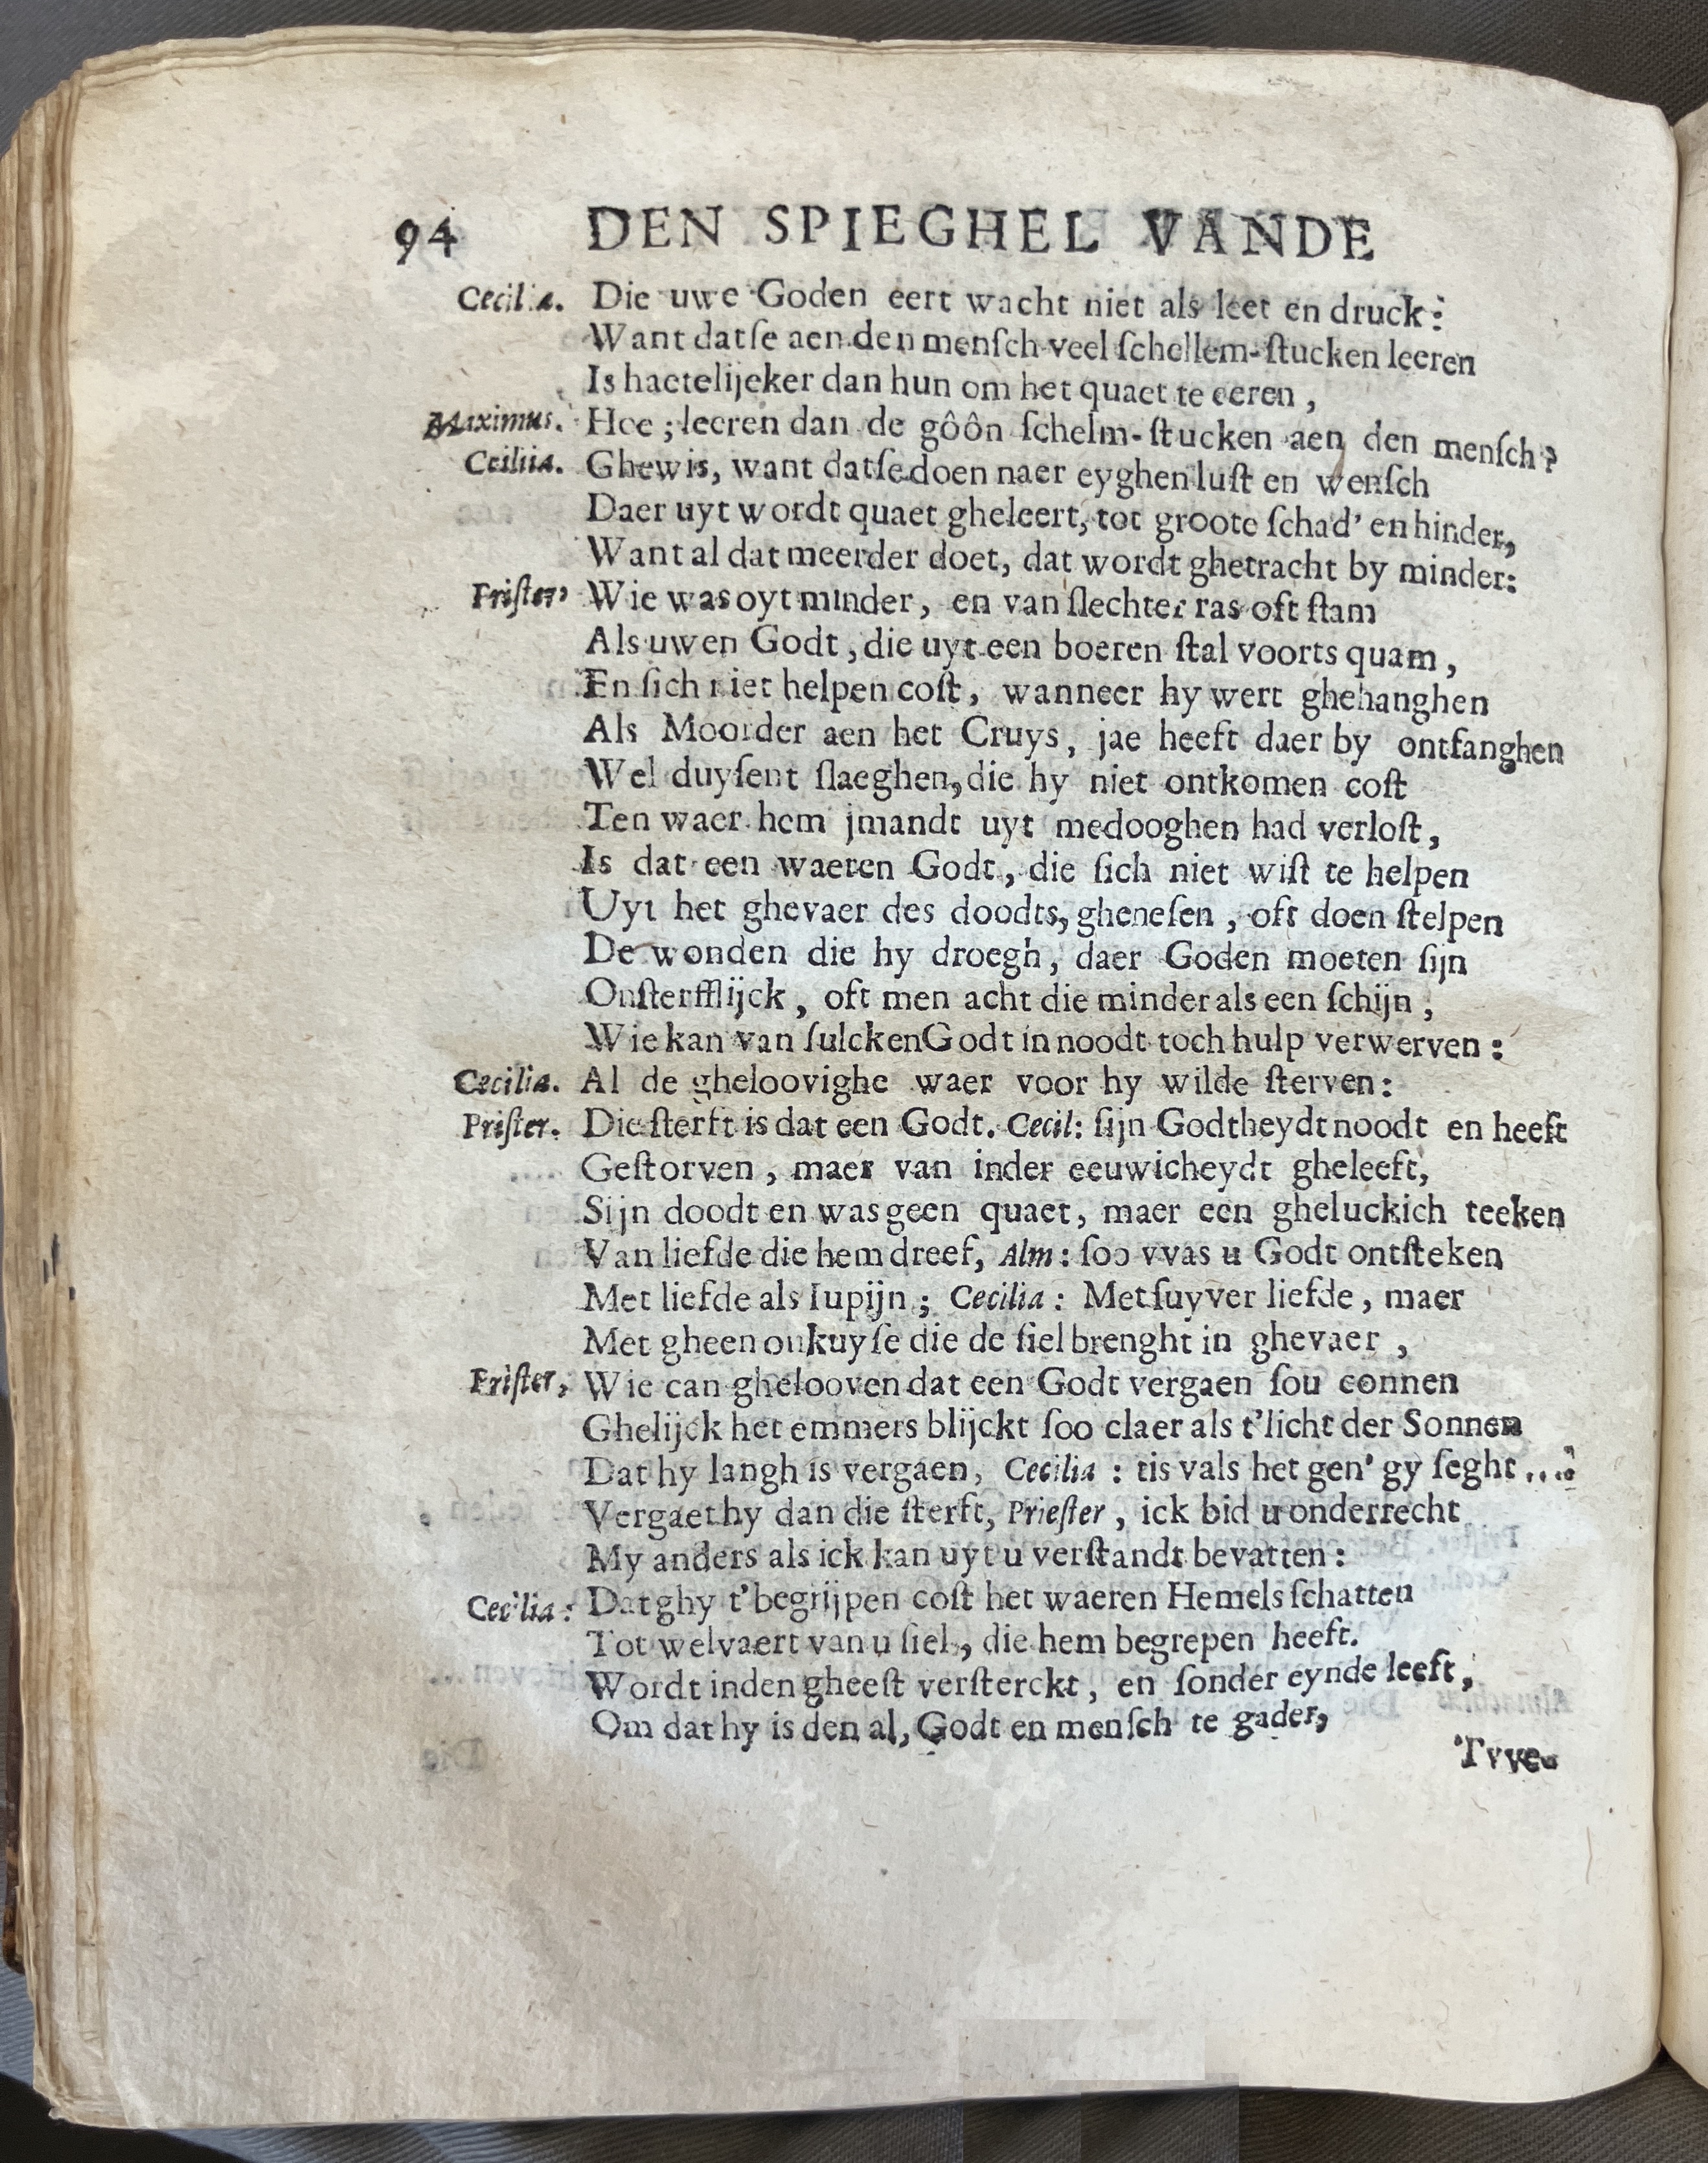 94 DEN SPIEGHEL VANDE
Cecilia. Die uwe Goden eert wacht niet als leet en druck:
Want datſe aen den menſch veel ſchellem-ſtucken leeren
Is haetelijeker dan hun om het quaet te eeren,
Maximus. Hoe; leeren dan de gôôn ſchelm-ſtucken aen den menſch?
Ceiliia. Ghewis, want datſe doen naer eyghen luſt en wenſch
Daer uyt wordt quaet gheleert, tot groote ſchad' en hinder,
Want al dat meerder doet, dat wordt ghetracht by minder:
Prister, Wie was oyt minder, en van ſlechter ras oft ſtam
Als uwen Godt, die uyt een boeren ſtal voorts quam,
En ſich niet helpen coſt, wanneer hy wert ghehanghen
Als Moorder aen het Cruys, jae heeft daer by ontfanghen
Wel duyſent ſlaeghen, die hy niet ontkomen coſt
Ten waer hem jmandt uyt medooghen had verloſt,
Is dat een waeren Godt, die ſich niet wiſt te helpen
Uyt het ghevaer des doodts, gheneſen, oft doen ſtelpen
De wonden die hy droegh, daer Goden moeten ſijn
Onſterfflijck, oft men acht die minder als een ſchijn,
Wie kan van ſulcken Godt in noodt toch hulp verwerven:
Cecilia. Al de gheloovighe waer voor hy wilde ſterven:
Priſter. Die ſterft is dat een Godt. Cecil: ſijn Godtheydt noodt en heeft
Geſtorven, maer van inder eeuwicheydt gheleeft,
Sijn doodt en was geen quaet, maer een gheluckich teeken
Van liefde die hem dreef, Alm: ſoo vvas u Godt ontſteken
Met liefde als Iupijn; Cecilia: Met ſuyver liefde, maer
Met gheen onkuyſe die de ſiel brenght in ghevaer,
Priſter, Wie can ghelooven dat een Godt vergaen ſou connen
Ghelijck het emmers blijckt ſoo claer als t'licht der Sonnen
Dat hy langh is vergaen, Cecilia: tis vals het gen' gy ſeght....
Vergaet hy dan die ſterft, Prieſter, ick bid u onderrecht
My anders als ick kan uyt u verſtandt bevatten:
Cecilia: Dat ghy t'begrijpen coſt het waeren Hemels ſchatten
Tot welvaert van u ſiel, die hem begrepen heeft.
Wordt inden gheeſt verſterckt, en ſonder eynde leeft,
Om dat hy is den al, Godt en menſch te gader,
Tvve-